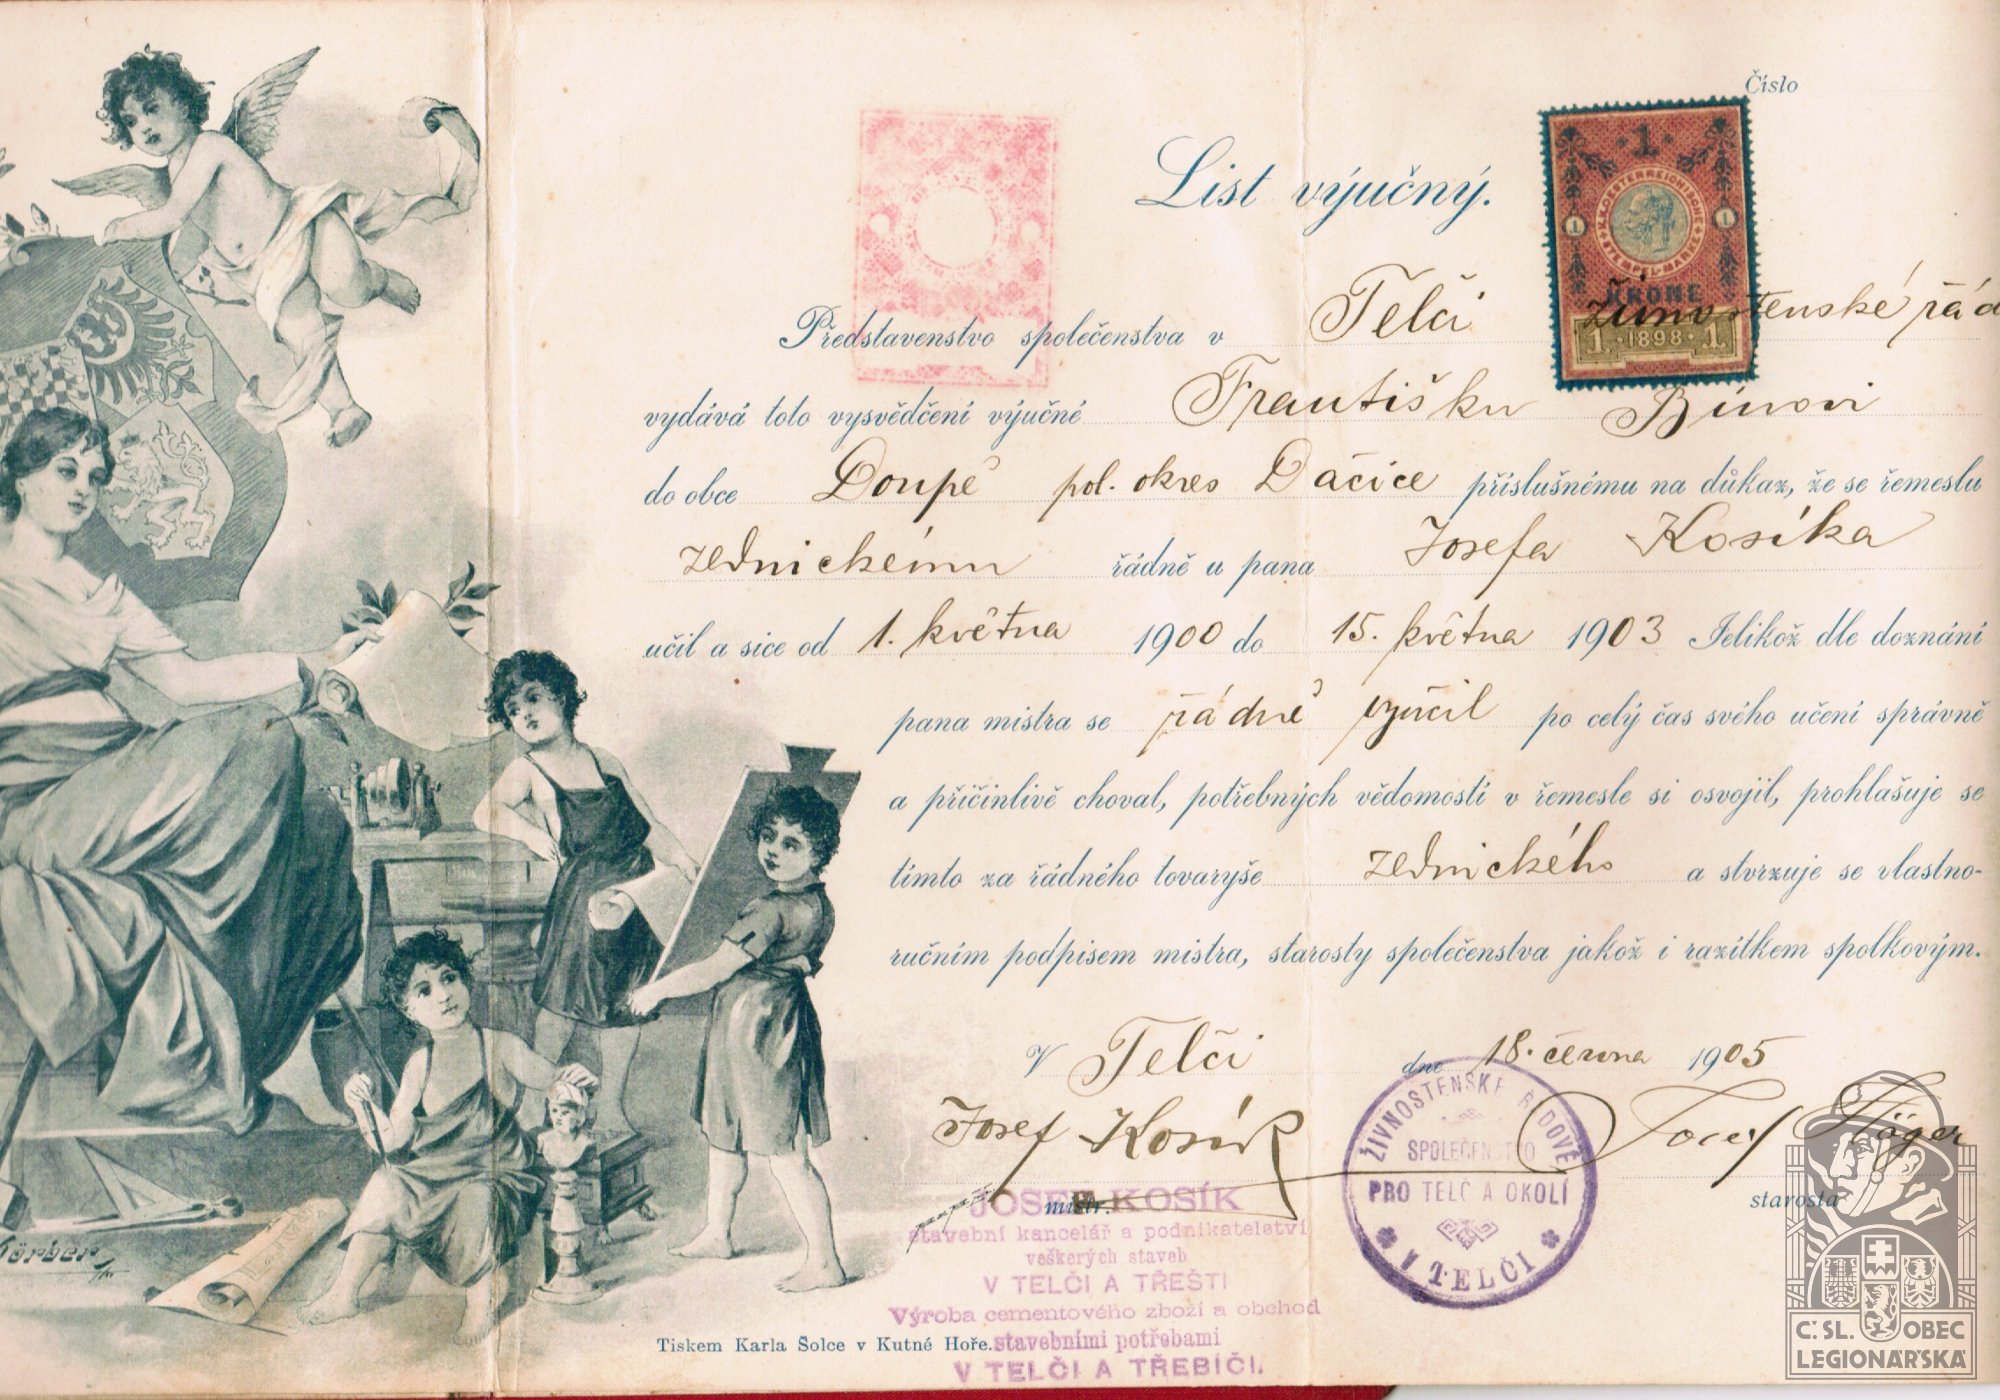 Číslo
List výučný.
1
K.K. OESTERREICHISCHE
STEMPEL-MARKE
1 1
KRONE
1 · 1898 · 1
Představenstvo společenstva v Telči Živnostenské řád
vydává toto vysvědčení výučné Františku Bínovi
do obce Doupě pol. okres Dačice příslušnému na důkaz, že se řemeslu
zednickému řádně u pana Josefa Kosíka
učil a sice od 1. května 1900 do 15. května 1903 Jelikož dle doznání
pana mistra se řádně vyučil po celý čas svého učení správně
a přičinlivě choval, potřebných vědomostí v řemesle si osvojil, prohlašuje se
tímto za řádného tovaryše zednického a stvrzuje se vlastno-
ručním podpisem mistra, starosty společenstva jakož i razítkem spolkovým.
V Telči dne 18. června 1905
Josef Kosík
mistr.
starosta
ŽIVNOSTENSKÉ ŘADOVÉ
SPOLEČENSTVO
PRO TELČ A OKOLÍ
V TELČI
JOSEF KOSÍK
stavební kancelář a podnikatelství
veškerých staveb
V TELČI A TŘEŠTI
Výroba cementového zboží a obchod
stavebními potřebami
V TELČI A TŘEBÍČI.
Tiskem Karla Šolce v Kutné Hoře.
Č. SL. OBEC
LEGIONÁŘSKÁ